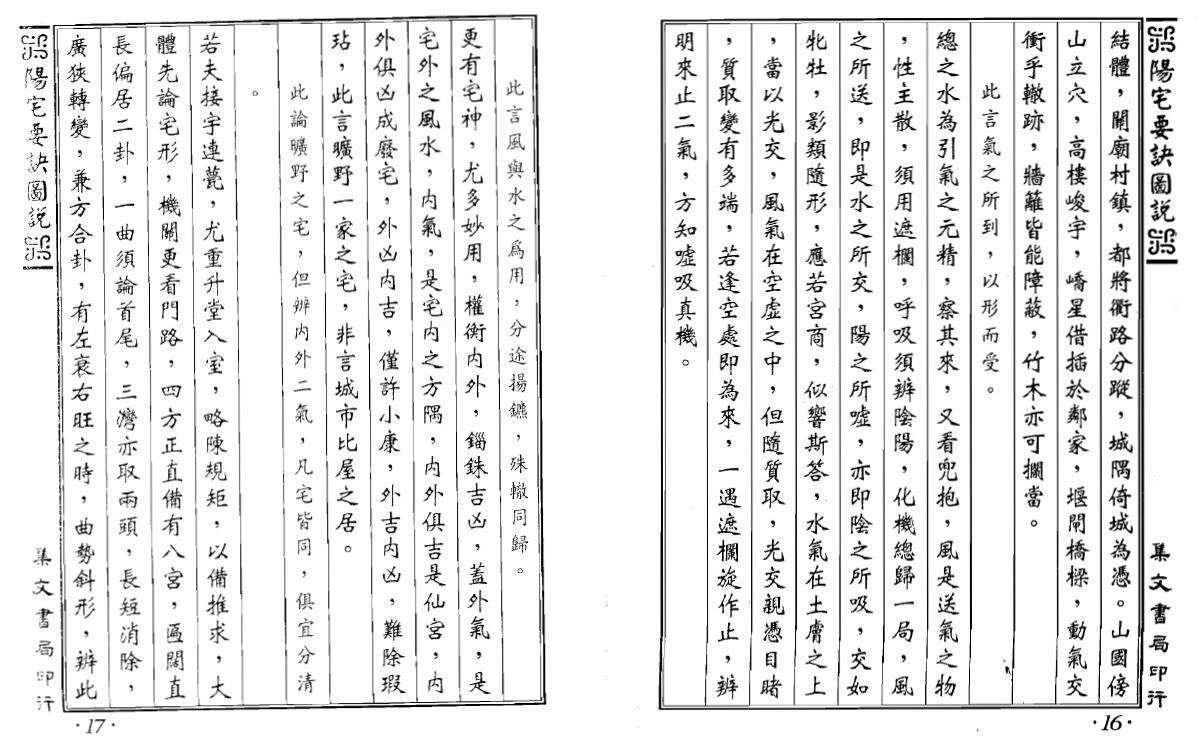 陽宅要訣圖説
集文書局印行
結體，關廟村鎮，都將衢路分蹤，城隅倚城為憑。山國傍
山立穴，高樓峻宇，嶠星借插於鄰家，堰閘橋樑，動氣交
衝乎轍跡，牆籬皆能障蔽，竹木亦可攔當。
此言氣之所到，以形而受。
總之水為引氣之元精，察其來，又看兜抱，風是送氣之物
，性主散，須用遮欄，呼吸須辨陰陽，化機總歸一局，風
之所送，即是水之所交，陽之所噓，亦即陰之所吸，交如
牝牡，影類隨形，應若宮商，似響斯答，水氣在土膚之上
，當以光交，風氣在空虛之中，但隨質取，光交親憑目睹
，質取變有多端，若逢空處即為來，一遇遮欄旋作止，辨
明來止二氣，方知噓吸真機。
·16·
此言風與水之爲用，分途揚鑣，殊轍同歸。
更有宅神，尤多妙用，權衡內外，錙銖吉凶，蓋外氣，是
宅外之風水，内氣，是宅内之方隅，内外俱吉是仙宮，内
外俱凶成廢宅，外凶内吉，僅許小康，外吉内凶，難除瑕
玷，此言曠野一家之宅，非言城市比屋之居。
此論曠野之宅，但辨内外二氣，凡宅皆同，俱宜分清
。
若夫接宇連甍，尤重升堂入室，略陳規矩，以備推求，大
體先論宅形，機關更看門路，四方正直備有八宮，匾闊直
長偏居二卦，一曲須論首尾，三灣亦取兩頭，長短消除，
廣狹轉變，兼方合卦，有左衰右旺之時，曲勢斜形，辨此
陽宅要訣圖説
集文書局印行
·17·